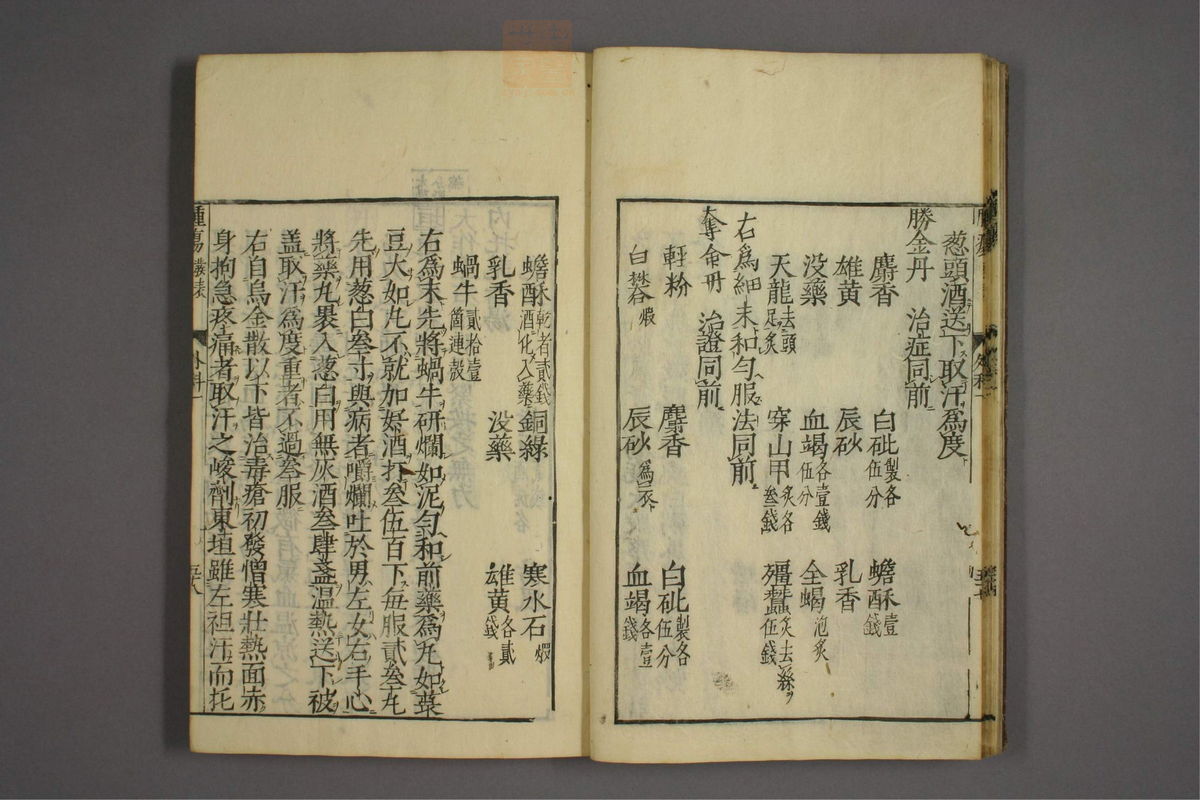 葱頭酒送下取汗爲度
勝金丹 治症同前
麝香 白砒製各伍分 蟾酥壹錢
雄黄 辰砂 乳香
没藥 血竭各壹錢伍分 全蝎泡炙
天龍去頭足炙 穿山甲炙各叁錢 殭蠶炙去絲伍錢
右爲細末和勻服法同前
奪命丹 治證同前
輕粉 麝香 白砒製各伍分
白礬煆 辰砂爲衣 血竭各壹錢
蟾酥乾者貳錢酒化入藥 銅綠 寒水石煆
乳香 没藥 雄黄各貳錢
蝸牛貳拾壹箇連殼
右爲末先將蝸牛研爛如泥勻和前藥爲丸如菉
豆大如丸不就加好酒打叁伍百下每服貳叁丸
先用葱白叁寸與病者嚼爛吐於男左女右手心
將藥丸裹入葱白用無灰酒叁肆盞温熱送下被
盖取汗爲度重者不過叁服
右自烏金散以下皆治毒瘡初發憎寒壯熱面赤
身拘急疼痛者取汗之峻劑東垣雖左袒汗而托
腫瘍 外科一 五十八